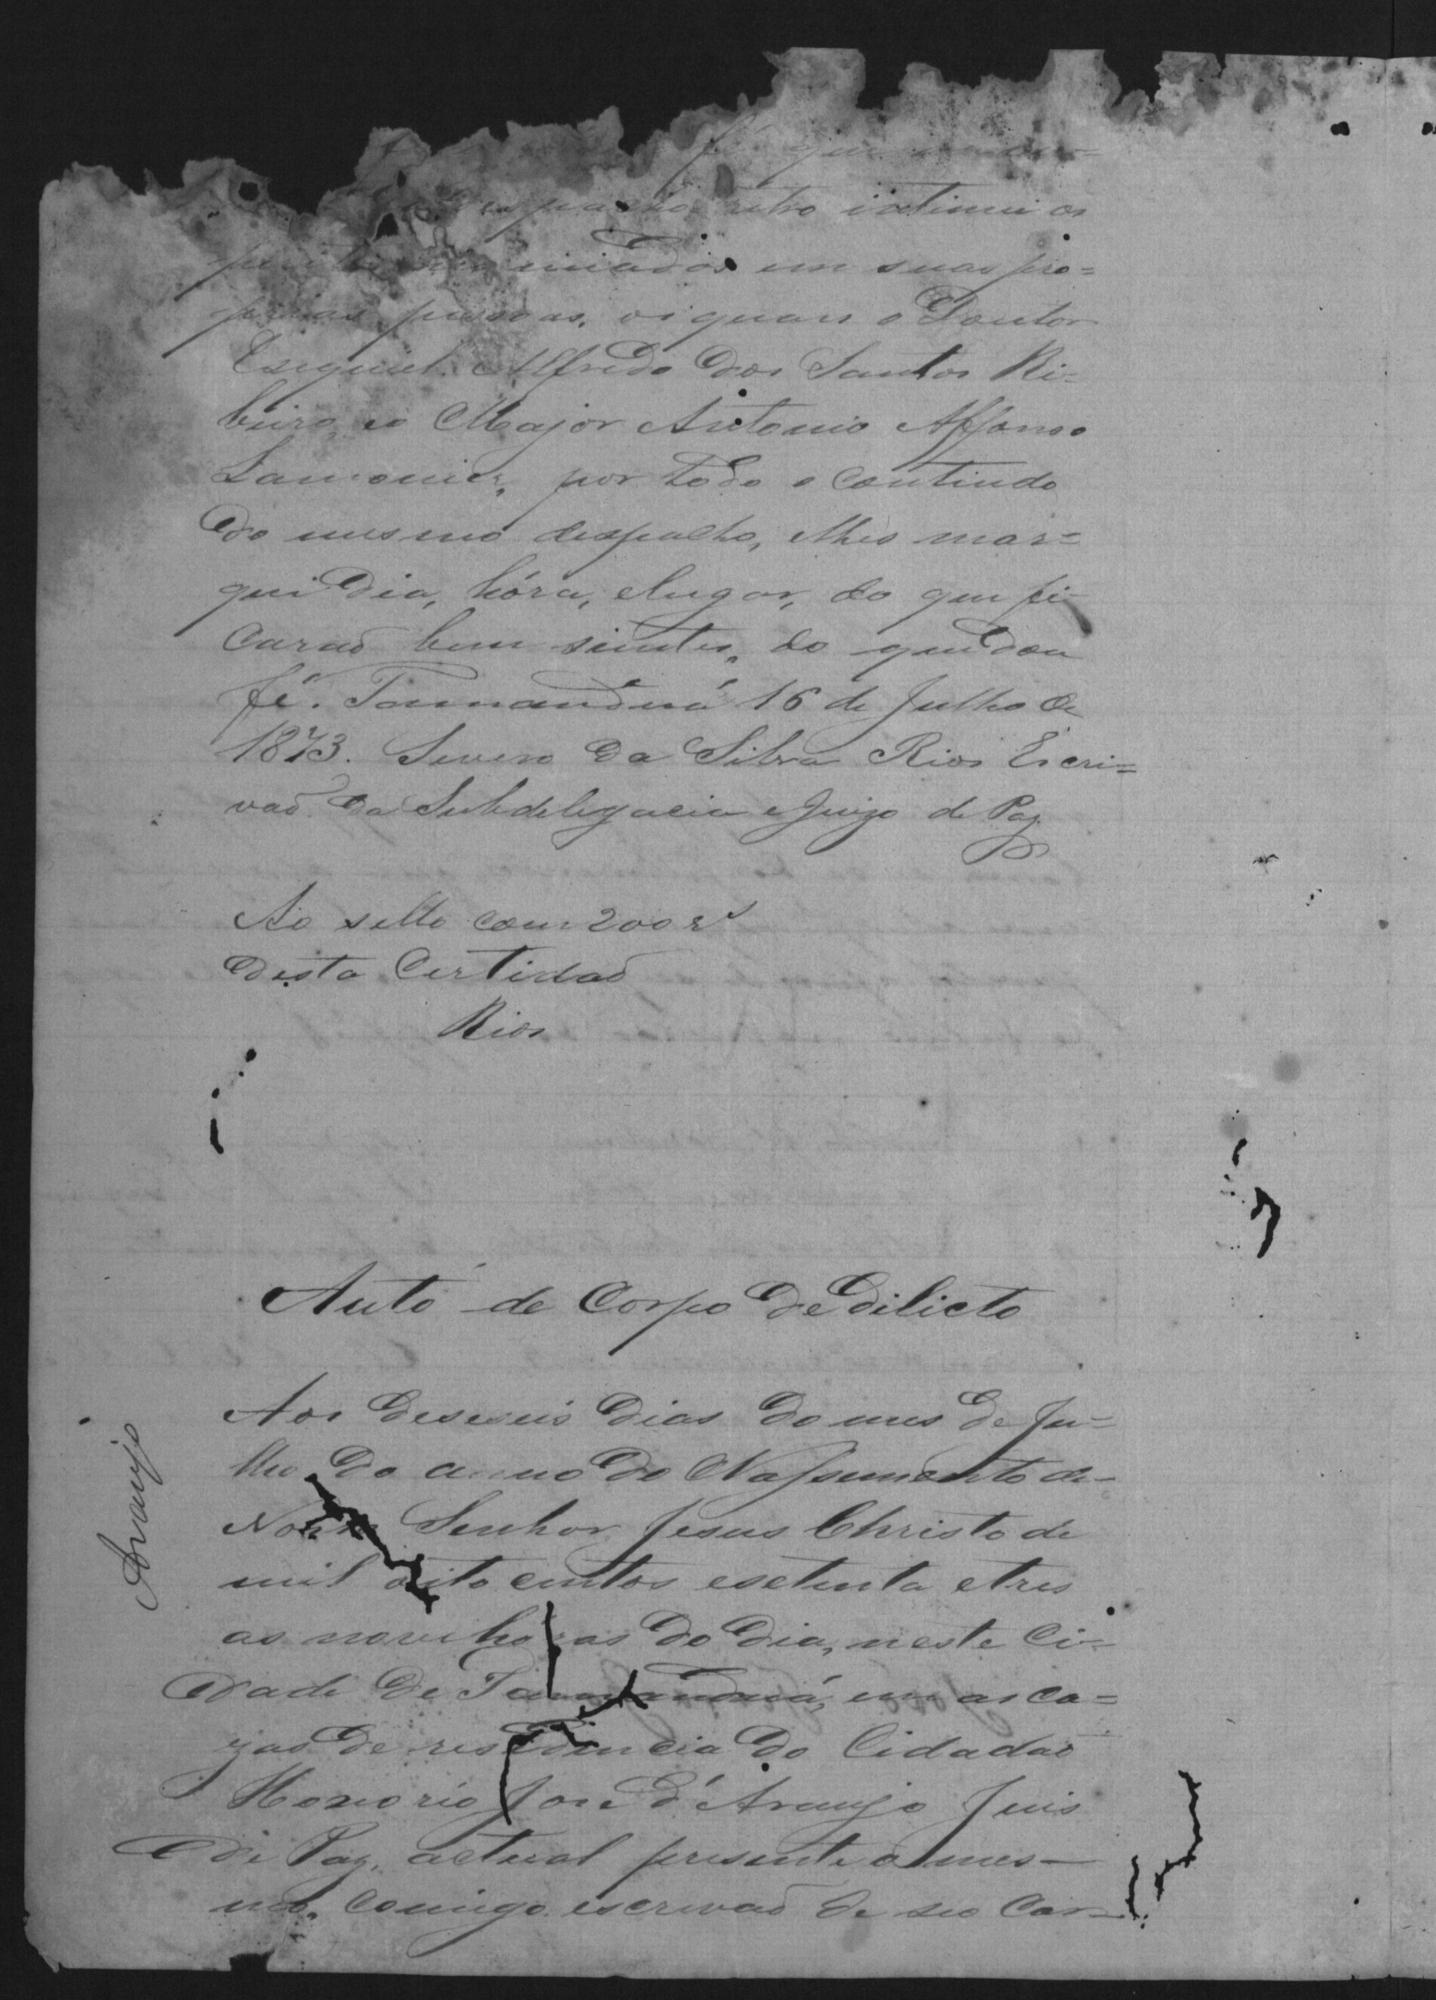 fé que
retro intimei os
nomiados em suas pro=
prias pessoas, os quaes o Doutor
Esequiel Alfredo dos Santos Ri=
beiro, eo Major Antonio Affonso
Lamonier, por todo o contiudo
do mesmo despacho, elhes mar=
quei dia, hóra, elugar, do que fi=
carão bem sientes, do que dou
fé. Tamanduá 16 de Julho de
1873. Severo da Silva Rios Escri=
vaõ da Subdelegacia e Juizo de Paz
Ao sello com 200 rs
desta Certidaõ
Rios
Auto de Corpo de dilicto
Araujo
Aos deseseis dias do mes de Ju=
lho do anno do Nassimento de
Nosso Senhor Jesus Christo de
mil oito centos esetenta etres
as nove horas do dia, neste Ci=
dade de Tamanduá, em as ca=
zas de residencia do Cidadaõ
Honorio Jose d'Araujo Juis
de Paz, actual presente o mes=
mo, comigo escrivaõ de seo Car=